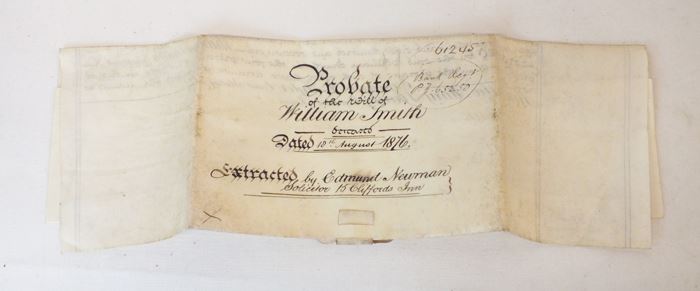 61245
Probate
of the Will of
William Smith
deceased
Dated 18th August 1876.
Extracted by Edmund Newman
Solicitor 15 Cliffords Inn